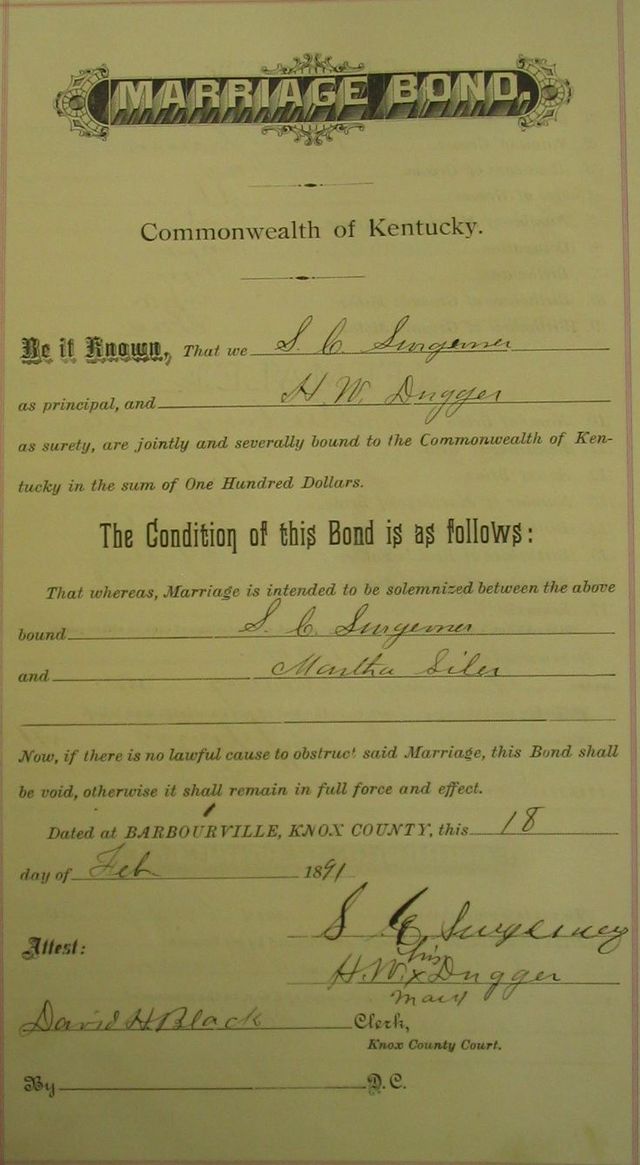 MARRIAGE BOND.
Commonwealth of Kentucky.
Be it Known, That we S. C. Surgenner
as principal, and H. W. Dugger
as surety, are jointly and severally bound to the Commonwealth of Ken-
tucky in the sum of One Hundred Dollars.
The Condition of this Bond is as follows:
That whereas, Marriage is intended to be solemnized between the above
bound S. C. Surgenner
and Martha Siler
Now, if there is no lawful cause to obstruct said Marriage, this Bond shall
be void, otherwise it shall remain in full force and effect.
Dated at BARBOURVILLE, KNOX COUNTY, this 18
day of Feb 1891
S C
Attest:
his
H. W. x Dugger
mark
David H Black Clerk,
Knox County Court.
By D. C.